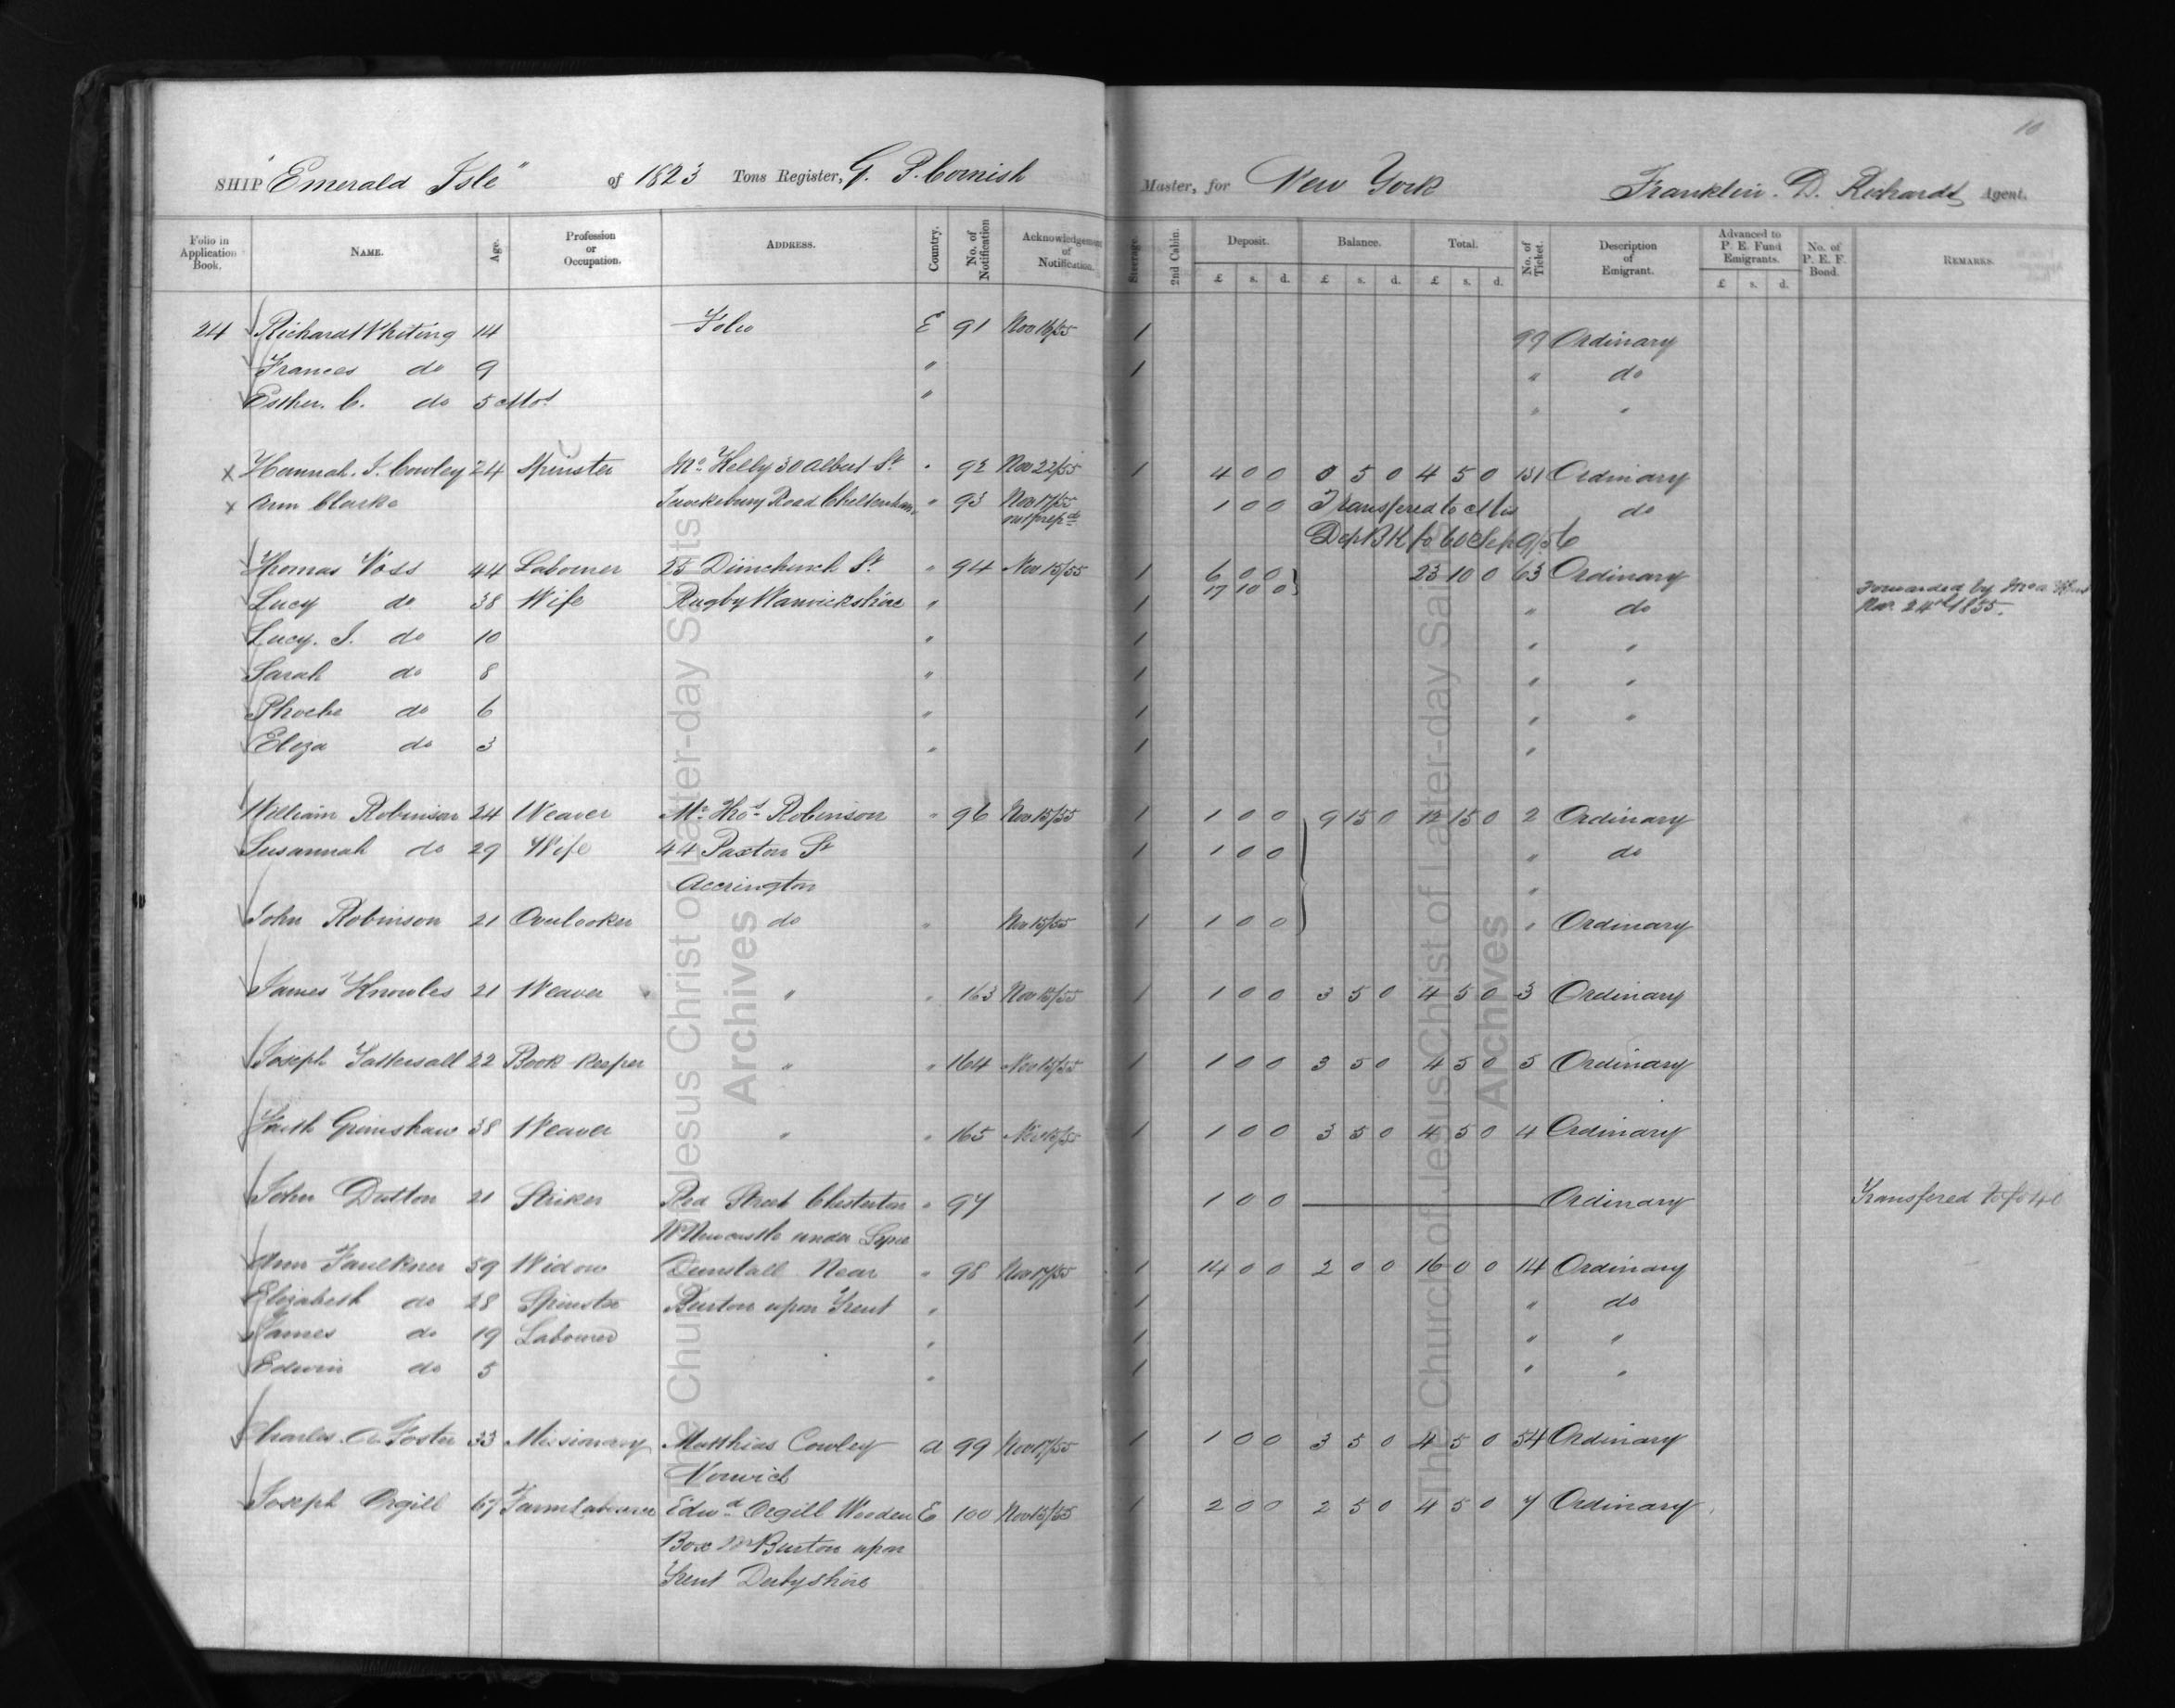 10
SHIP "Emerald Isle" of 1823 Tons Register, G. P. Cornish Master, for New York Franklin. D. Richards Agent.
Folio in Application Book. NAME. Age. Profession or Occupation. ADDRESS. Country. No. of Notification Acknowledgement of Notification. Steerage. 2nd Cabin. Deposit. £ s. d. Balance. £ s. d. Total. £ s. d. No. of Ticket. Description of Emigrant. Advanced to P. E. Fund Emigrants. £ s. d. No. of P. E. F. Bond. REMARKS.
24 Richard Whiting 14 E 91 Nov 16/55 1 99 Ordinary
Frances do 9 " 1 " do
Esther. C. do 5 Mos " " "
x Hannah. I. Cowley 24 Spinster Mr Kelly 30 Albert St " 92 Nov 22/55 1 4 0 0 0 5 0 4 5 0 131 Ordinary
x Ann Clarke Road Cheltenham " 93 Nov 17/55 1 0 0 Transfered to Mis do
Dep B K fo 60 Sep 9/56
Thomas Voss 44 Labourer 25 Dimchurch St " 94 Nov 15/55 1 6 0 0 23 10 0 63 Ordinary
17 10 0 Forwarded by
Lucy do 38 Wife Rugby Warwickshire " 1 " do Nov. 24th 1855.
Lucy. I. do 10 " 1 " "
Sarah do 8 " 1 " "
Phoebe do 6 " 1 " "
Eliza do 3 " 1 "
William Robinson 24 Weaver Mr Thos Robinson " 96 Nov 15/55 1 1 0 0 9 15 0 12 15 0 2 Ordinary
Susannah do 29 Wife 44 Paxton St 1 1 0 0 " do
Accrington "
John Robinson 21 Overlooker do " Nov 15/55 1 1 0 0 " Ordinary
James Knowles 21 Weaver " " 163 Nov 15/55 1 1 0 0 3 5 0 4 5 0 3 Ordinary
Joseph Tattersall 22 Book-keeper " " 164 Nov 15/55 1 1 0 0 3 5 0 4 5 0 5 Ordinary
Grimshaw 38 Weaver " " 165 Nov 15/55 1 1 0 0 3 5 0 4 5 0 4 Ordinary
John Dutton 21 Striker Red Street Chesterton " 97 1 0 0 Ordinary Transfered to fo 40
Nr Newcastle under Lyne
Ann Faulkner 59 Widow Dunstall Near " 98 Nov 17/55 1 14 0 0 2 0 0 16 0 0 14 Ordinary
Elizabeth do 28 Spinster Burton upon Trent " 1 " do
James do 19 Labourer " 1 " "
Edwin do 5 " 1 " "
Charles. A. Foster 33 Missionary Matthias Cowley A 99 Nov 17/55 1 1 0 0 3 5 0 4 5 0 54 Ordinary
Norwich
Joseph Orgill 67 Farm Labourer Edwd Orgill Wooden E 100 Nov 15/55 1 2 0 0 2 5 0 4 5 0 7 Ordinary
Box Nr Burton upon
Trent Derbyshire
The Church of Jesus Christ of Latter-day Saints
Archives
The Church of Jesus Christ of Latter-day Saints
Archives